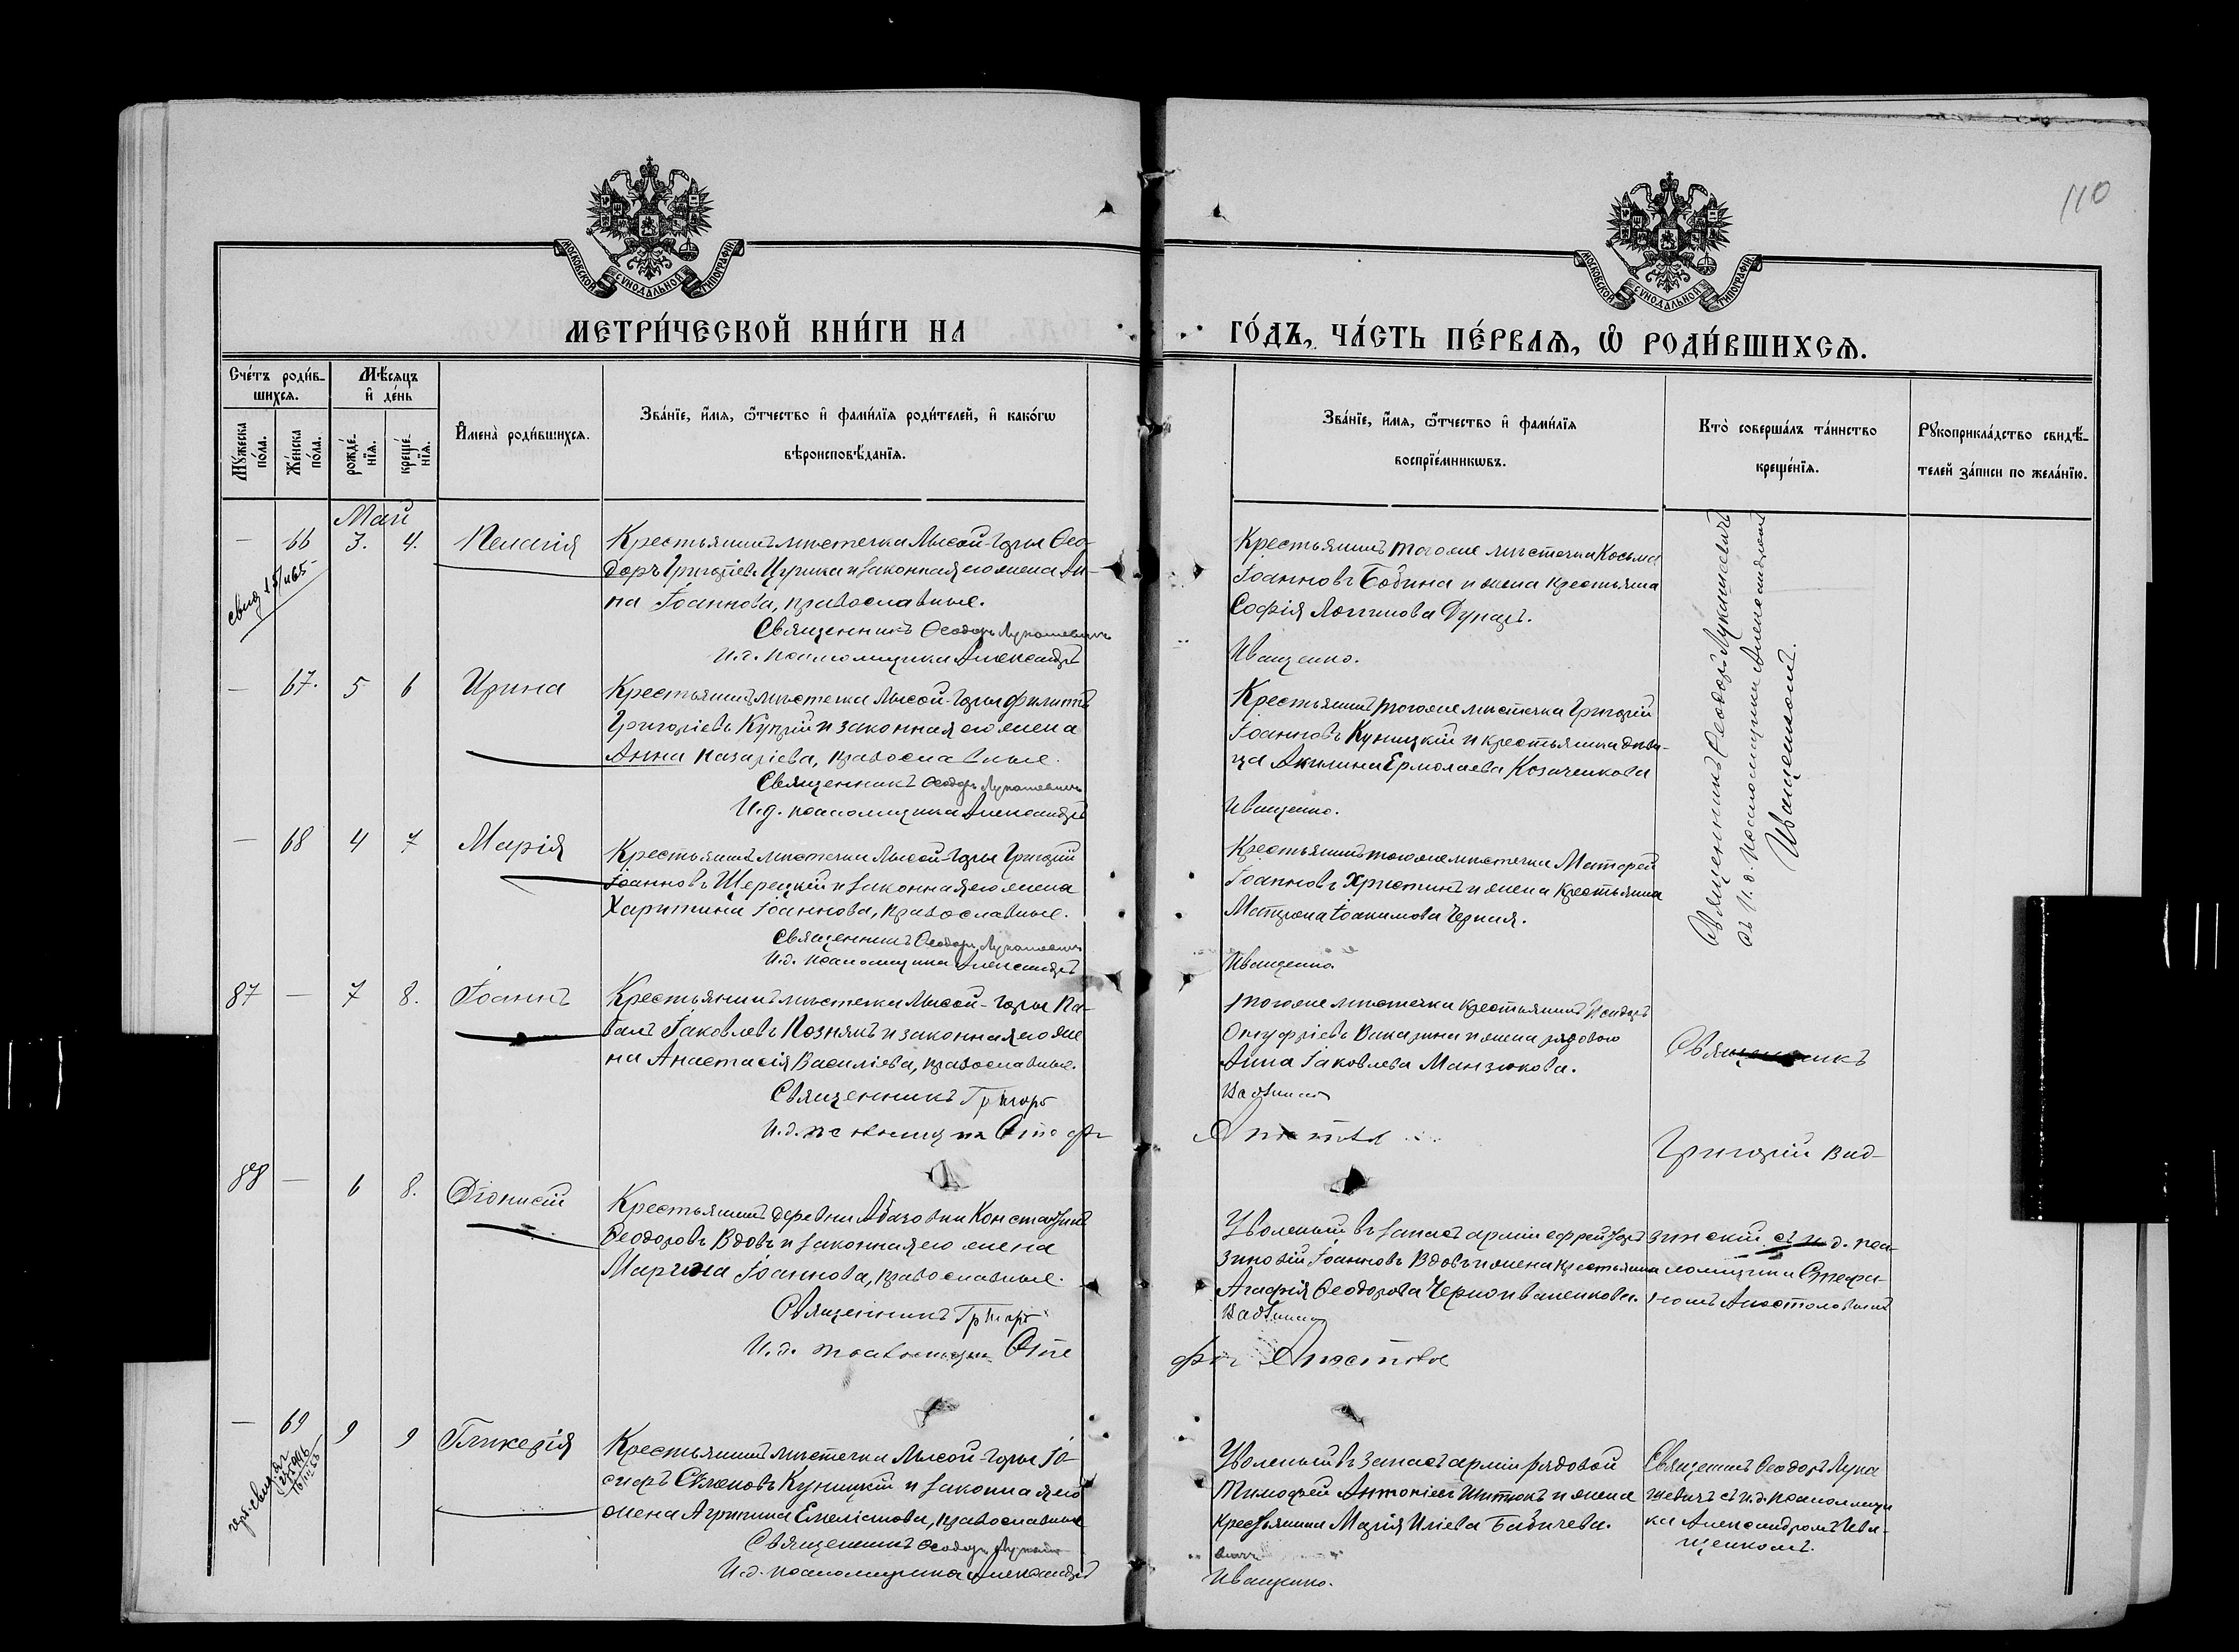 110
МОСКОВСКОЙ СѴНОДАЛЬНОЙ ТИПОГРАФІИ
МОСКОВСКОЙ СѴНОДАЛЬНОЙ ТИПОГРАФІИ
МЕТРИ́ЧЕСКОЙ КНИ́ГИ НА
ГО́ДЪ, ЧА́СТЬ ПЕ́РВАѦ, Ѡ҆ РОДИ́ВШИХСѦ.
Сче́тъ роди́в-
шихсѧ.
Мѣ́сяцъ
и҆ де́нь
Мꙋ́жеска
по́ла.
Же́нска
по́ла.
рожде́-
нїѧ.
креще́-
нїѧ.
И҆мена̀ роди́вшихсѧ.
Зва́нїе, и҆́мѧ, ѻ҆́тчество и҆ фами́лїѧ роди́телей, и҆ како́гѡ
вѣроисповѣ́данїѧ.
Зва́нїе, и҆́мѧ, ѻ҆́тчество и҆ фами́лїѧ
воспрїе́мникѡвъ.
Кто̀ соверша́лъ та́инство
креще́нїѧ.
Рꙋкоприкла́дство свидѣ́-
телей за́писи по жела́нїю.
Май
— 66 3. 4. Пелагія
Крестьянинъ мѣстечка Лысой-Горы Ѳео-
доръ Григоріевъ Цурика и законная его жена Ан-
на Іоаннова, православные.
Священникъ Ѳеодоръ Лукашевичъ
И.д. псаломщика Александръ
Крестьянинъ того же мѣстечка Косьма
Іоанновъ Бабина и жена крестьянина
Софія Логгинова Дунаръ.
Иващенко.
Священникъ Ѳеодоръ Лукашевичъ
съ И.д. псаломщика Александромъ
Иващенкомъ.
— 67. 5 6 Ирина
Крестьянинъ мѣстечка Лысой-Горы Филиппъ
Григоріевъ Купрій и законная его жена
Анна Назаріева, православные.
Священникъ Ѳеодоръ Лукашевичъ
И.д. псаломщика Александръ
Крестьянинъ того же мѣстечка Григорій
Іоанновъ Куницкій и крестьянка дѣви-
ца Акилина Ермолаева Козаченкова
Иващенко.
— 68 4 7 Марія
Крестьянинъ мѣстечка Лысой-Горы Григорій
Іоанновъ Щерецкій и законная его жена
Харитина Іоаннова, православные.
Священникъ Ѳеодоръ Лукашевичъ
И.д. псаломщика Александръ
Крестьянинъ того же мѣстечка Матѳей
Іоанновъ Христинъ и жена крестьянина
Матрона Іоакимова Черная.
Иващенко
87 — 7 8. Іоаннъ
Крестьянинъ мѣстечка Лысой-Горы Па-
велъ Іаковлевъ Познякъ и законная его же
на Анастасія Василіева, православные.
Священникъ Григорій
И.д. псаломщика Стефа
Того же мѣстечка крестьянинъ Исидоръ
Онуфріевъ Викарина и жена рядового
Анна Іаковлева Манзюкова.
Священникъ
Григорій Вад-
88 — 6 8. Діонисій
Крестьянинъ деревни Абазовки Константинъ
Ѳеодоровъ Вдовъ и законная его жена
Марина Іоаннова, православные.
Священникъ Григорій
И.д. псаломщика Стефа
Уволеный въ запасъ арміи ефрейторъ
Зиновій Іоанновъ Вдовъ и жена крестьянина
Агафія Ѳеодорова Черноиваненкова.
зинскій съ и.д. пса-
ломщика Стефа-
номъ Апостоловымъ
— 69 9 9 Гликерія
Крестьянинъ мѣстечка Лысой-Горы Іо-
сифъ Сѵмеоновъ Куницкій и законная его
жена Агриппина Емеліанова, православные
Священникъ Ѳеодоръ Лукаше
И.д. псаломщика Александръ
Уволеный въ запасъ арміи рядовой
Тимофей Антоніевъ Шитюкъ и жена
крестьянина Марія Иліева Бабичева.
Иващенко.
Священникъ Ѳеодоръ Лука
шевичъ съ и.д. псаломщи
ка Александромъ Ива-
щенкомъ.